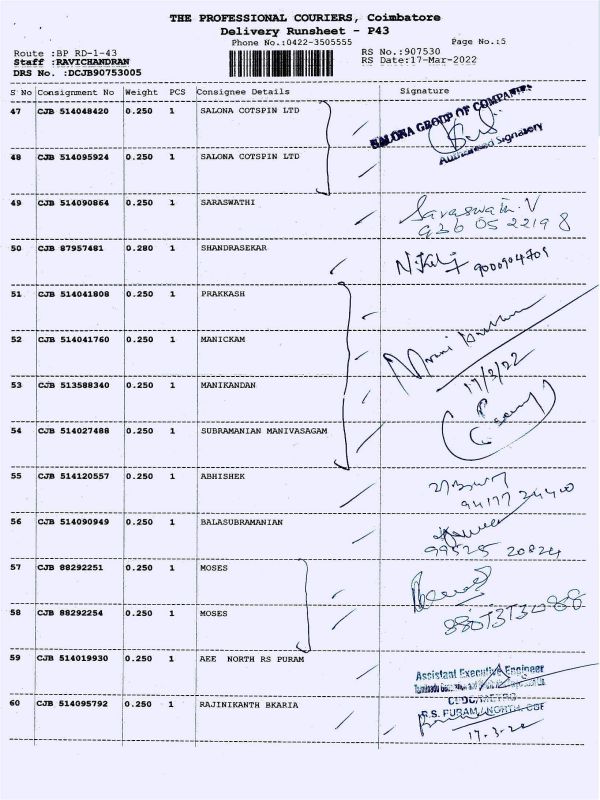 THE PROFESSIONAL COURIERS, Coimbatore
Delivery Runsheet - P43
Phone No.:0422-3505555 Page No.:5
Route :BP RD-1-43 RS No.:907530
Staff :RAVICHANDRAN RS Date:17-Mar-2022
DRS No. :DCJB90753005
S No Consignment No Weight PCS Consignee Details Signature
47 CJB 514048420 0.250 1 SALONA COTSPIN LTD SALONA GROUP OF COMPANIES
Authorised Signatory
48 CJB 514095924 0.250 1 SALONA COTSPIN LTD
49 CJB 514090864 0.250 1 SARASWATHI Saraswathi. V
50 CJB 87957481 0.280 1 SHANDRASEKAR 9000904701
51 CJB 514041808 0.250 1 PRAKKASH
52 CJB 514041760 0.250 1 MANICKAM
17/3/22
53 CJB 513588340 0.250 1 MANIKANDAN
54 CJB 514027488 0.250 1 SUBRAMANIAN MANIVASAGAM
55 CJB 514120557 0.250 1 ABHISHEK
94177 34400
56 CJB 514090949 0.250 1 BALASUBRAMANIAN
99525 20824
57 CJB 88292251 0.250 1 MOSES
58 CJB 88292254 0.250 1 MOSES
59 CJB 514019930 0.250 1 AEE NORTH RS PURAM
Assistant Executive Engineer
60 CJB 514095792 0.250 1 RAJINIKANTH BKARIA
R.S. PURAM / NORTH, CBE
17-3-22